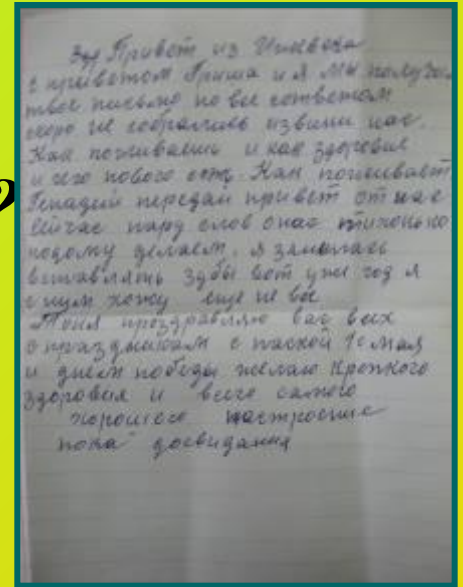 Зду Привет из Ижевска
с приветом Гриша и я мы получили
твое письмо но все сответом
скоро не собрались извини нас.
Как поживаешь и как здоровие
и чего нового есть. Как поживает
Генадий передай привет от нас
сейчас пару слов о нас тихонько
подому делаем. я занялась
вставлять зубы вот уже год я
с ним хожу еще не все
Тоня проздравляю вас всех
с праздником с паской 1е мая
и днем победы желаю крепкого
здоровия и всего самого
хорошего настроение
пока досвидания